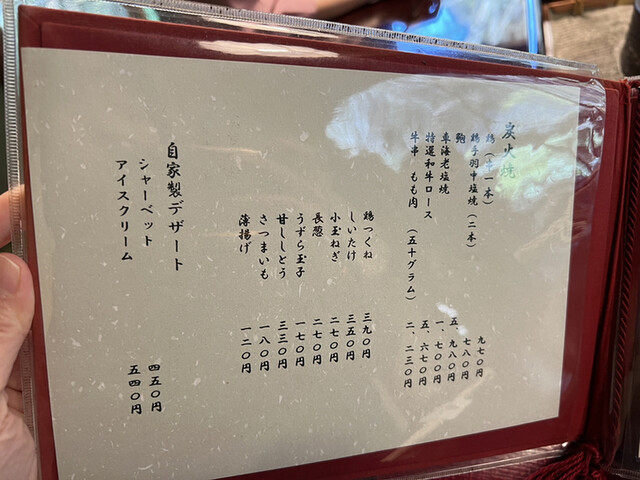 炭火焼
鶏（串一本） 九七〇円
鶏手羽中塩焼（二本） 七八〇円
鮑 五、九八〇円
車海老塩焼 一、七〇〇円
特選和牛ロース 五、六七〇円
牛串 もも肉 （五十グラム） 二、二三〇円
鶏つくね 三九〇円
しいたけ 三五〇円
小玉ねぎ 二七〇円
長葱 二七〇円
うずら玉子 一七〇円
甘ししとう 三三〇円
さつまいも 一八〇円
薄揚げ 一二〇円
自家製デザート
シャーベット 四五〇円
アイスクリーム 五四〇円